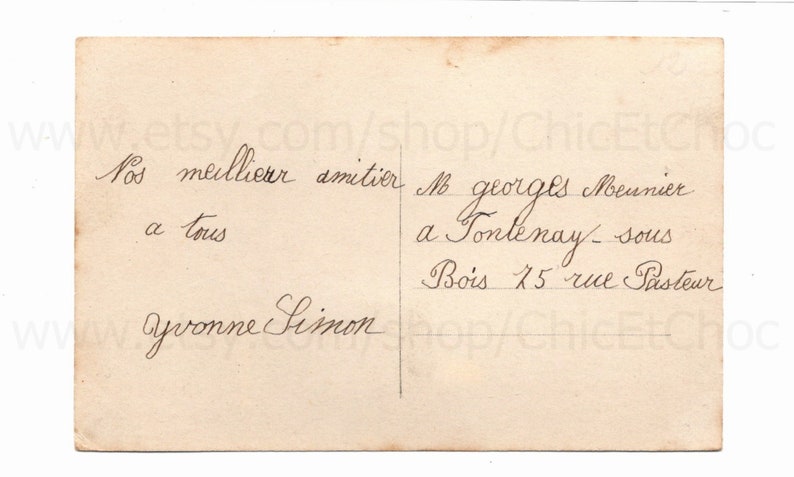 www.etsy.com/shop/ChicEtChoc
Nos meillieur amitier
a tous
Yvonne Simon
M georges Meunier
a Fontenay-sous
Bois 25 rue Pasteur
www.etsy.com/shop/ChicEtChoc
12